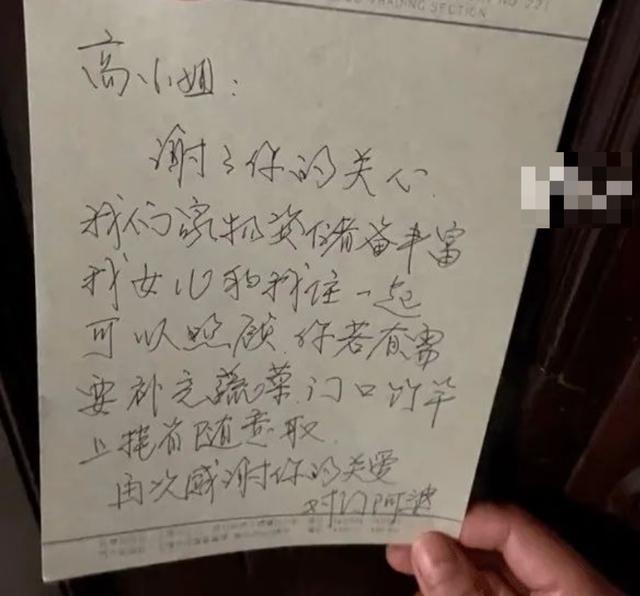 NO 221
TRADING SECTION
高小姐：
谢谢你的关心.
我们家物资储备丰富
我女儿和我住一起
可以照顾.你若有需
要补充蔬菜.门口竹竿
上挂有随意取.
再次感谢你的关爱
对门阿婆